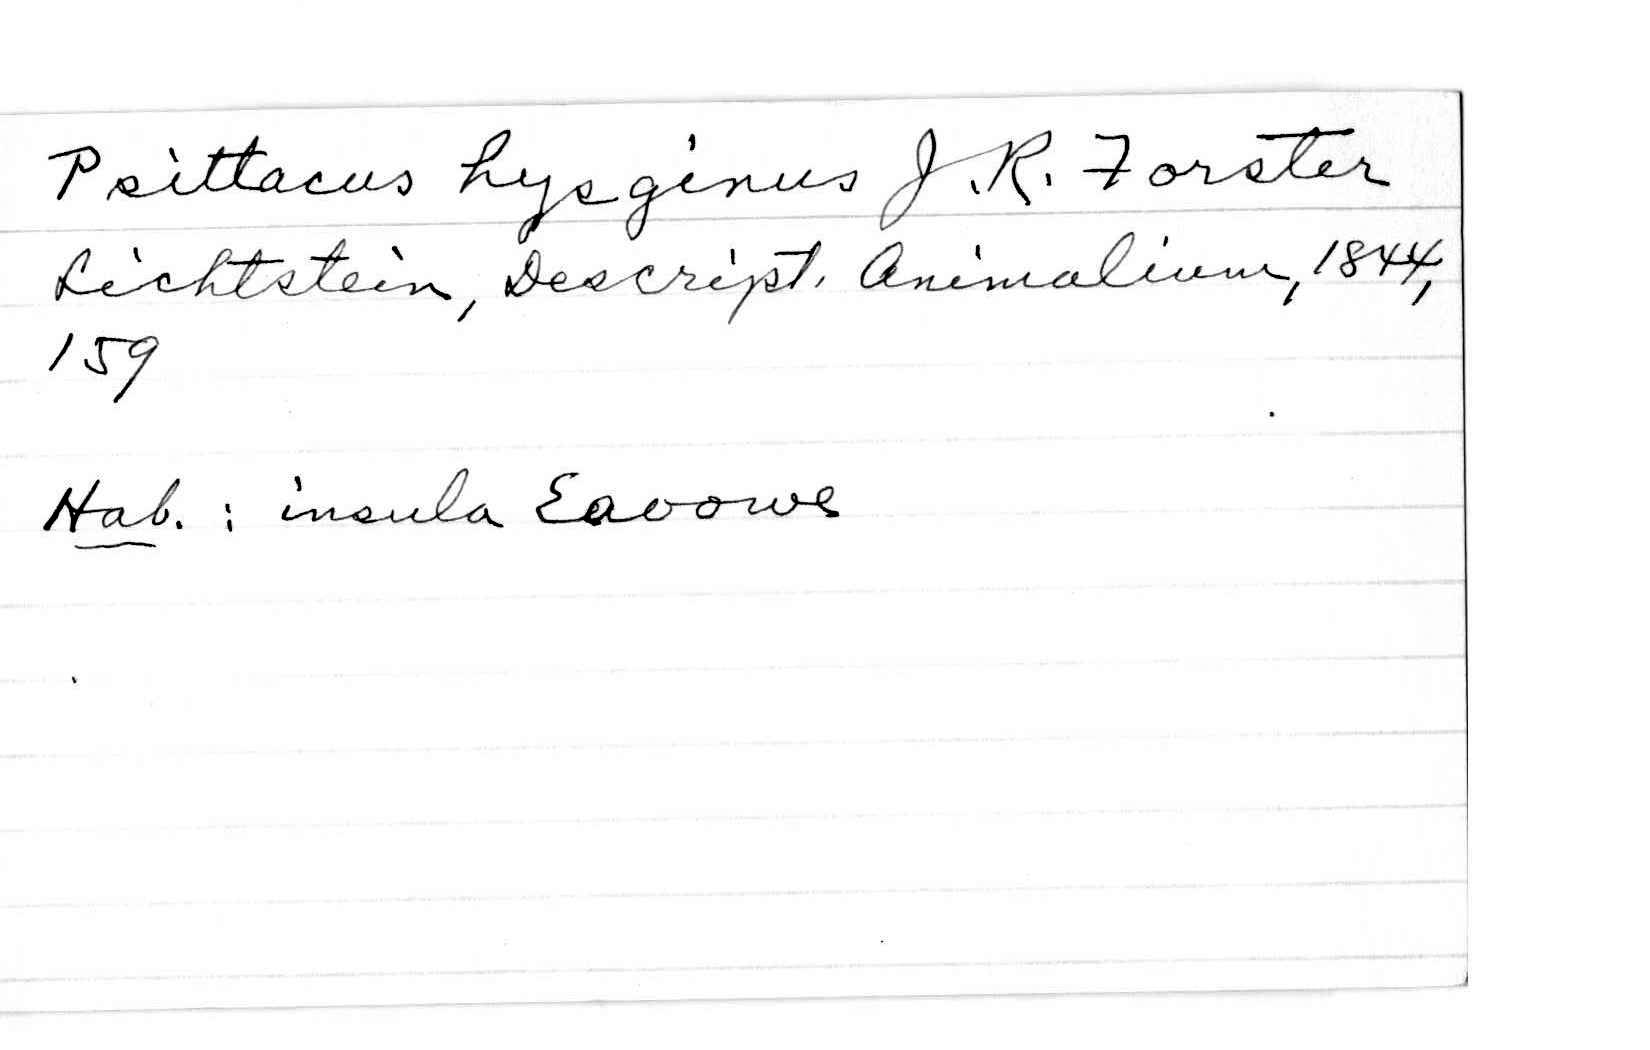 Psittacus hysginus J. R. Forster
Lichtstein, Descript. Animalium, 1844,
159
Hab. : insula Eaoowe